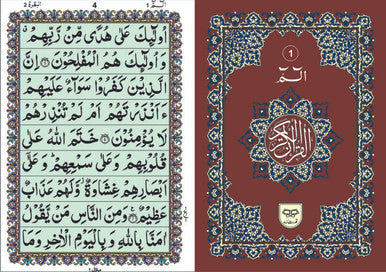 البقرة ٢
4
الٓمّٓ ١
اُولٰٓئِكَ عَلٰى هُدًى مِّنْ رَّبِّهِمْ
وَ اُولٰٓئِكَ هُمُ الْمُفْلِحُوْنَ ۝ اِنَّ
الَّذِيْنَ كَفَرُوْا سَوَآءٌ عَلَيْهِمْ
ءَاَنْذَرْتَهُمْ اَمْ لَمْ تُنْذِرْهُمْ
لَا يُؤْمِنُوْنَ ۝ خَتَمَ اللّٰهُ عَلٰى
قُلُوْبِهِمْ وَعَلٰى سَمْعِهِمْ ؕ وَعَلٰٓى
اَبْصَارِهِمْ غِشَاوَةٌ ؗ وَّلَهُمْ عَذَابٌ
عَظِيْمٌ ۝ وَمِنَ النَّاسِ مَنْ يَّقُوْلُ
اٰمَنَّا بِاللّٰهِ وَبِالْيَوْمِ الْاٰخِرِ وَمَا
1
الٓمّٓ
القرآن الكريم